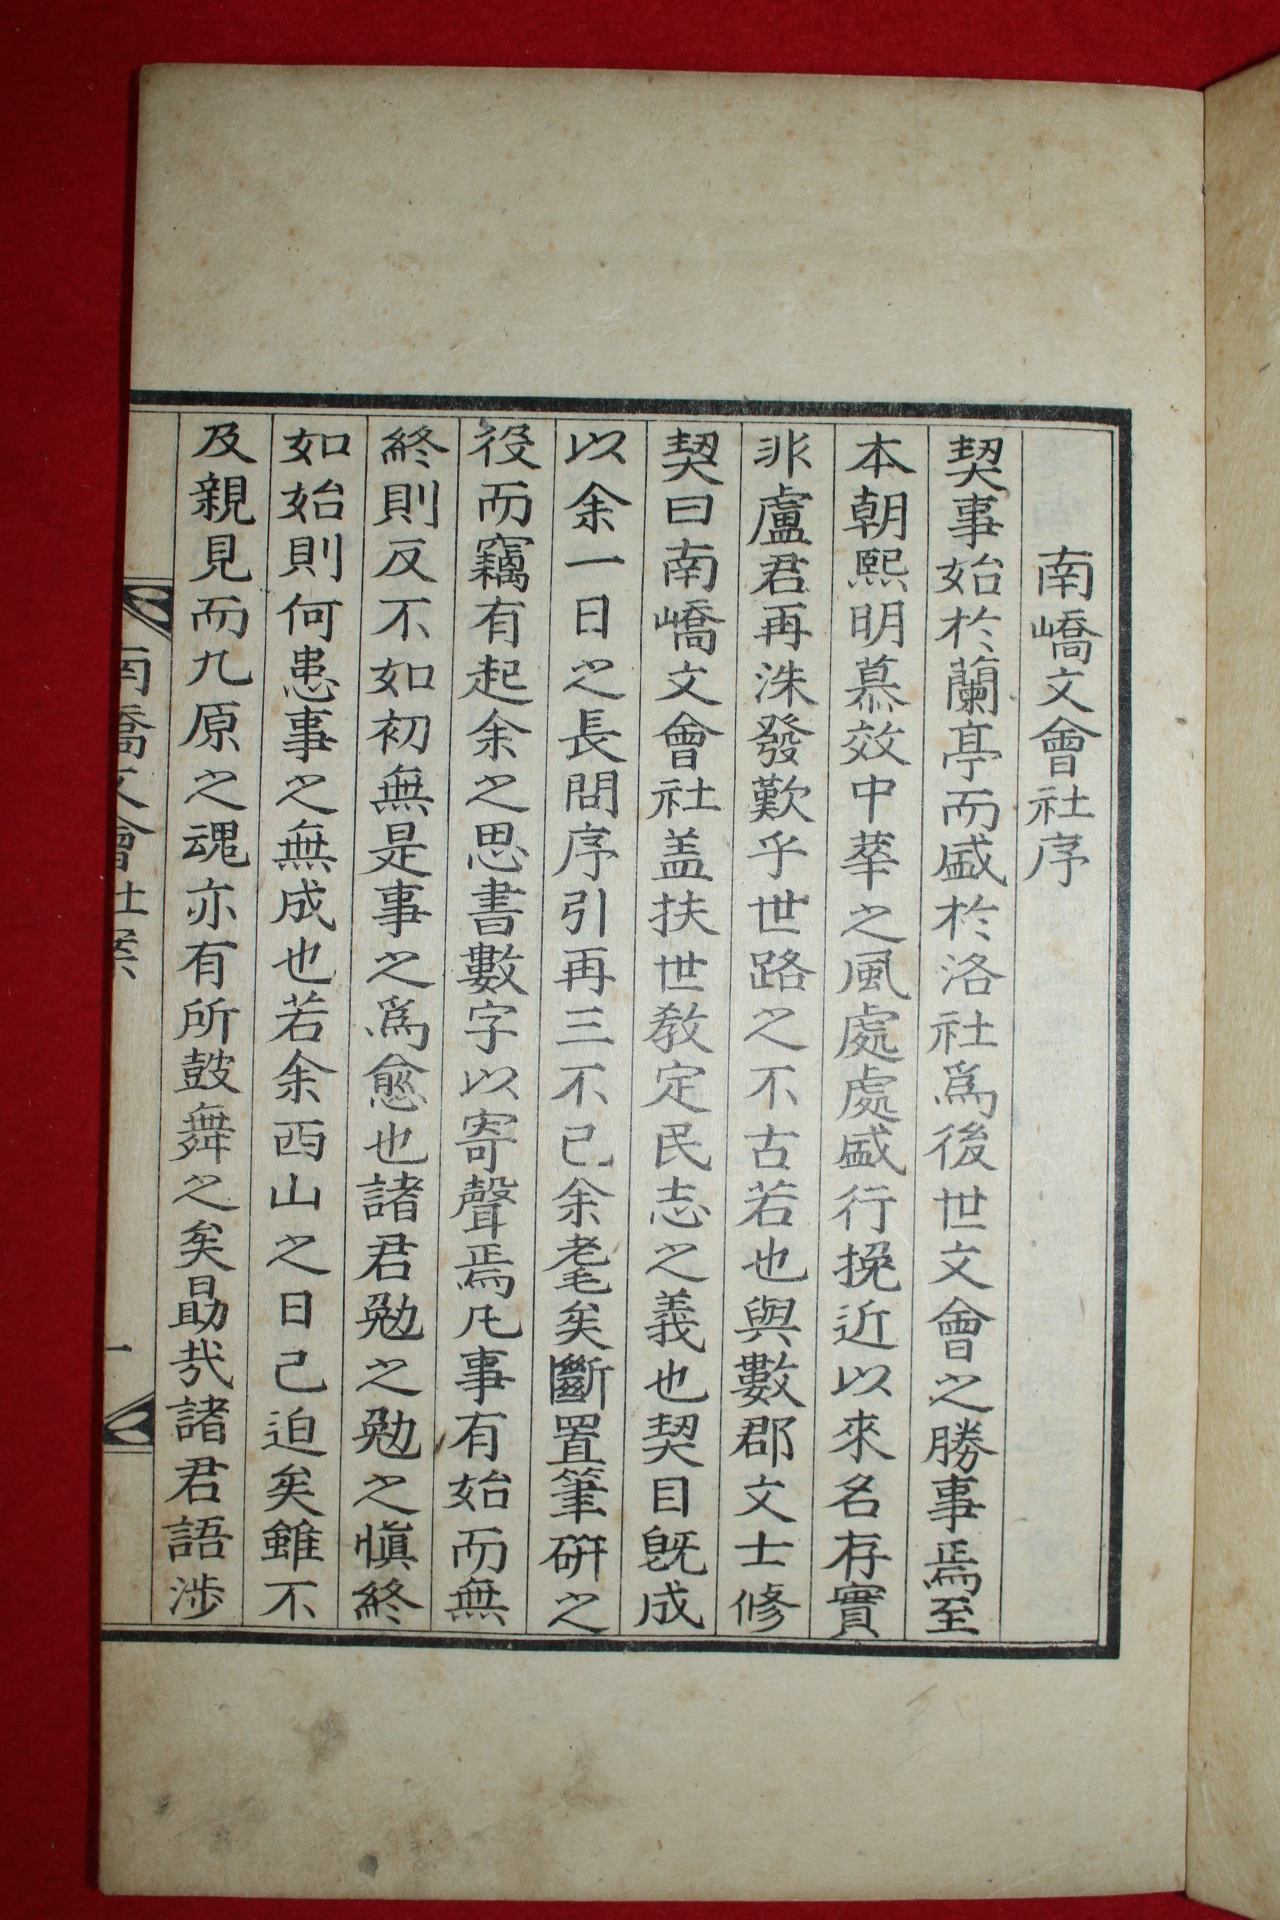 南嶠文會社序
契事始於蘭亭而盛於洛社爲後世文會之勝事焉至
本朝熙明慕效中華之風處處盛行挽近以來名存實
非盧君再洙發歎乎世路之不古若也與數郡文士修
契曰南嶠文會社盖扶世敎定民志之義也契目旣成
以余一日之長問序引再三不已余耄矣斷置筆硏之
役而竊有起余之思書數字以寄聲焉凡事有始而無
終則反不如初無是事之爲愈也諸君勉之勉之愼終
如始則何患事之無成也若余西山之日已迫矣雖不
及親見而九原之魂亦有所鼓舞之矣勗哉諸君語涉
南嶠文會社案
一